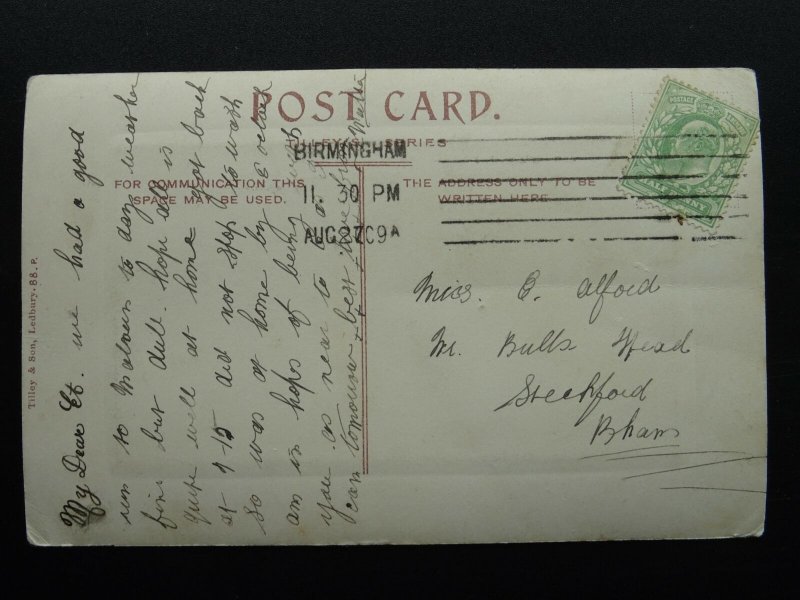 POST CARD.
TILLEY'S SERIES
BIRMINGHAM
11. 30 PM
AUG 27 09 A
FOR COMMUNICATION THIS
SPACE MAY BE USED.
THE ADDRESS ONLY TO BE
WRITTEN HERE.
POSTAGE
HALFPENNY
Tilley & Son, Ledbury. 88. P.
My Dear Et. we had a good
run to Malvern to day weather
fine but dull. hope all is
quite well at home got back
at 4-15 did not stop to wash
so was at home by 5 oclock
am in hopes of being with
you as near to
can tomorrow best love
Miss. E. Alford
Nr. Bulls Head
Stechford
Bham